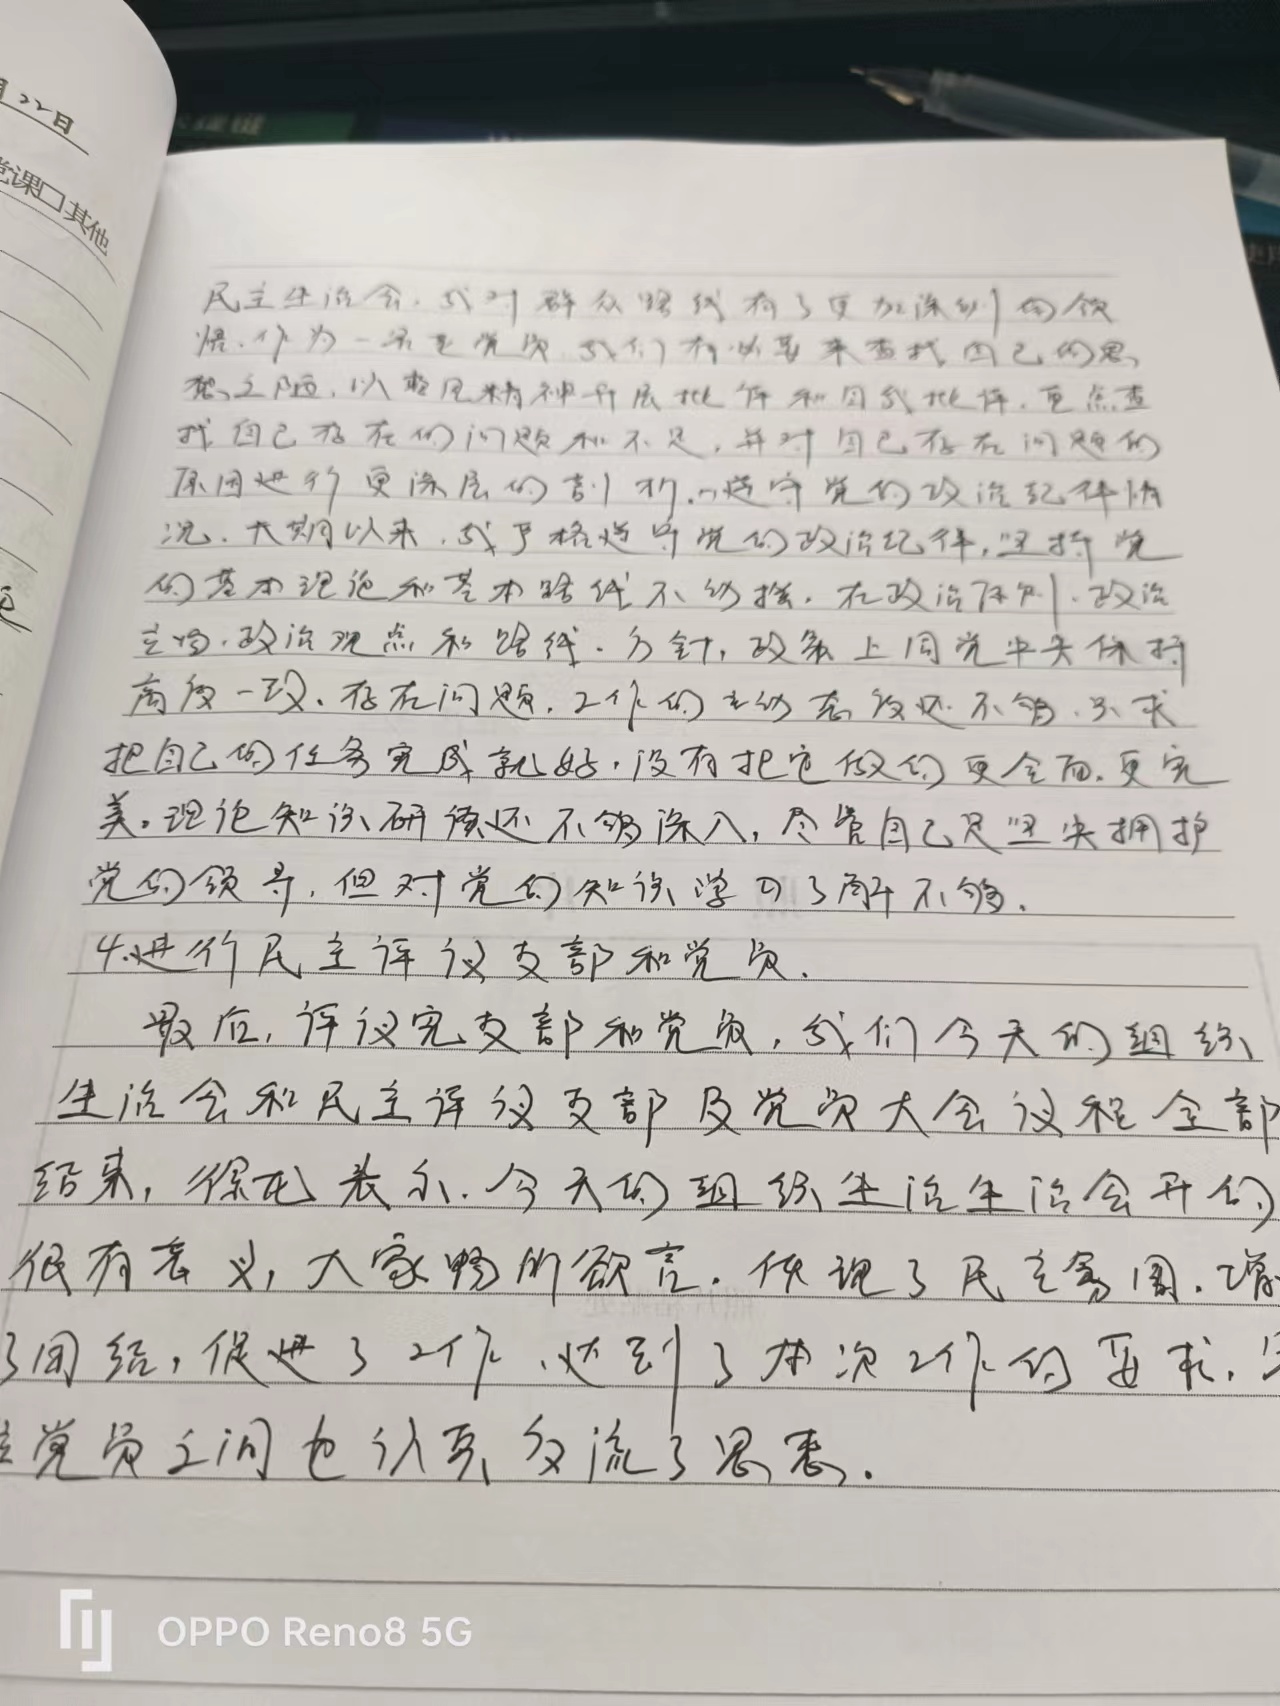 月22日
党课□其他
民主生活会，我对群众路线有了更加深刻的领
悟，作为一名老党员，我们有必要来查找自己的思
想之陋，以整风精神开展批评和自我批评，重点查
找自己存在的问题和不足，并对自己存在问题的
原因进行更深层的剖析。遵守党的政治纪律情
况，大期以来，我严格遵守党的政治纪律，坚持党
的基本理论和基本路线不动摇，在政治原则、政治
立场、政治观点和路线、方针，政策上同党中央保持
高度一致。存在问题，工作的主动态度还不够，只求
把自己的任务完成就好，没有把它做的更全面，更完
美。理论知识研读还不够深入，尽管自己是坚决拥护
党的领导，但对党的知识学习了解不够。
4.进行民主评议支部和党员。
最后，评议完支部和党员，我们今天的组织
生活会和民主评议支部及党员大会议程全部
结束，徐龙表示，今天的组织生活生活会开的
很有意义，大家畅所欲言，体现了民主氛围，增
了团结，促进了工作，达到了本次工作的要求，
党员之间也认真交流了思想。
OPPO Reno8 5G